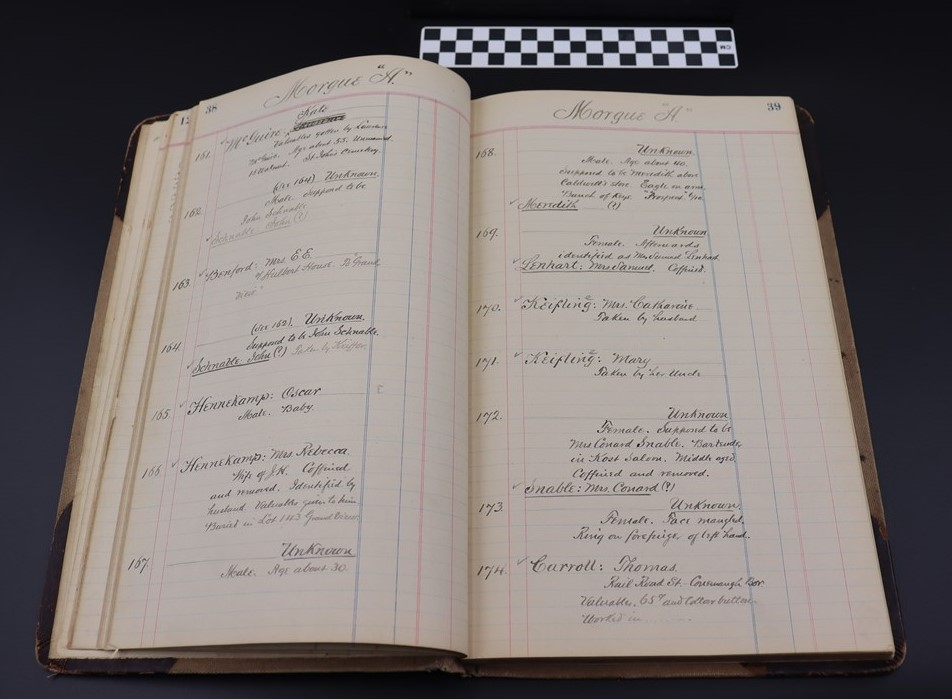 12
38
Morgue "A."
Kate
161. McGuire:
Valuables taken by
McGuire. Age about 55. Unmarried.
St John's Cemetery.
(See 164) Unknown.
162. Male. Supposed to be
John Schnable
Schnable: John (?)
163. Benford: Mrs E.E.
of Hulbert House. "Grand
View"
(See 162) Unknown.
164. Supposed to be John Schnable.
Schnable: John (?) Taken by
165. Hennekamp: Oscar
Male. Baby.
166. Hennekamp: Mrs Rebecca.
Wife of J.H. Coffined
and removed. Identified by
husband. Valuables given to him
Buried in Lot 142 Grand View
Unknown
167. Male. Age about 30.
39
Morgue "A"
168. Unknown.
Male. Age about 40.
Supposed to be Meredith above
Caldwell's Store. Eagle on arm,
Bunch of keys. "Prospect"
Meredith (?)
169. Unknown
Female. Afterwards
identified as Mrs Samuel Lenhart
Lenhart: Mrs Samuel. Coffined.
170. Keifling: Mrs. Catharine
Taken by husband
171. Keifling: Mary
Taken by her Uncle
172. Unknown
Female. Supposed to be
Mrs Conard Snable. Bartender
in Kost Saloon. Middle aged.
Coffined and removed.
Snable: Mrs. Conard (?)
173. Unknown.
Female. Face mangled.
Ring on forefinger of left hand.
174. Carroll: Thomas.
Rail Road St. Conemaugh Bor
Valuables. 65¢ and Collar button
Worked in
CM